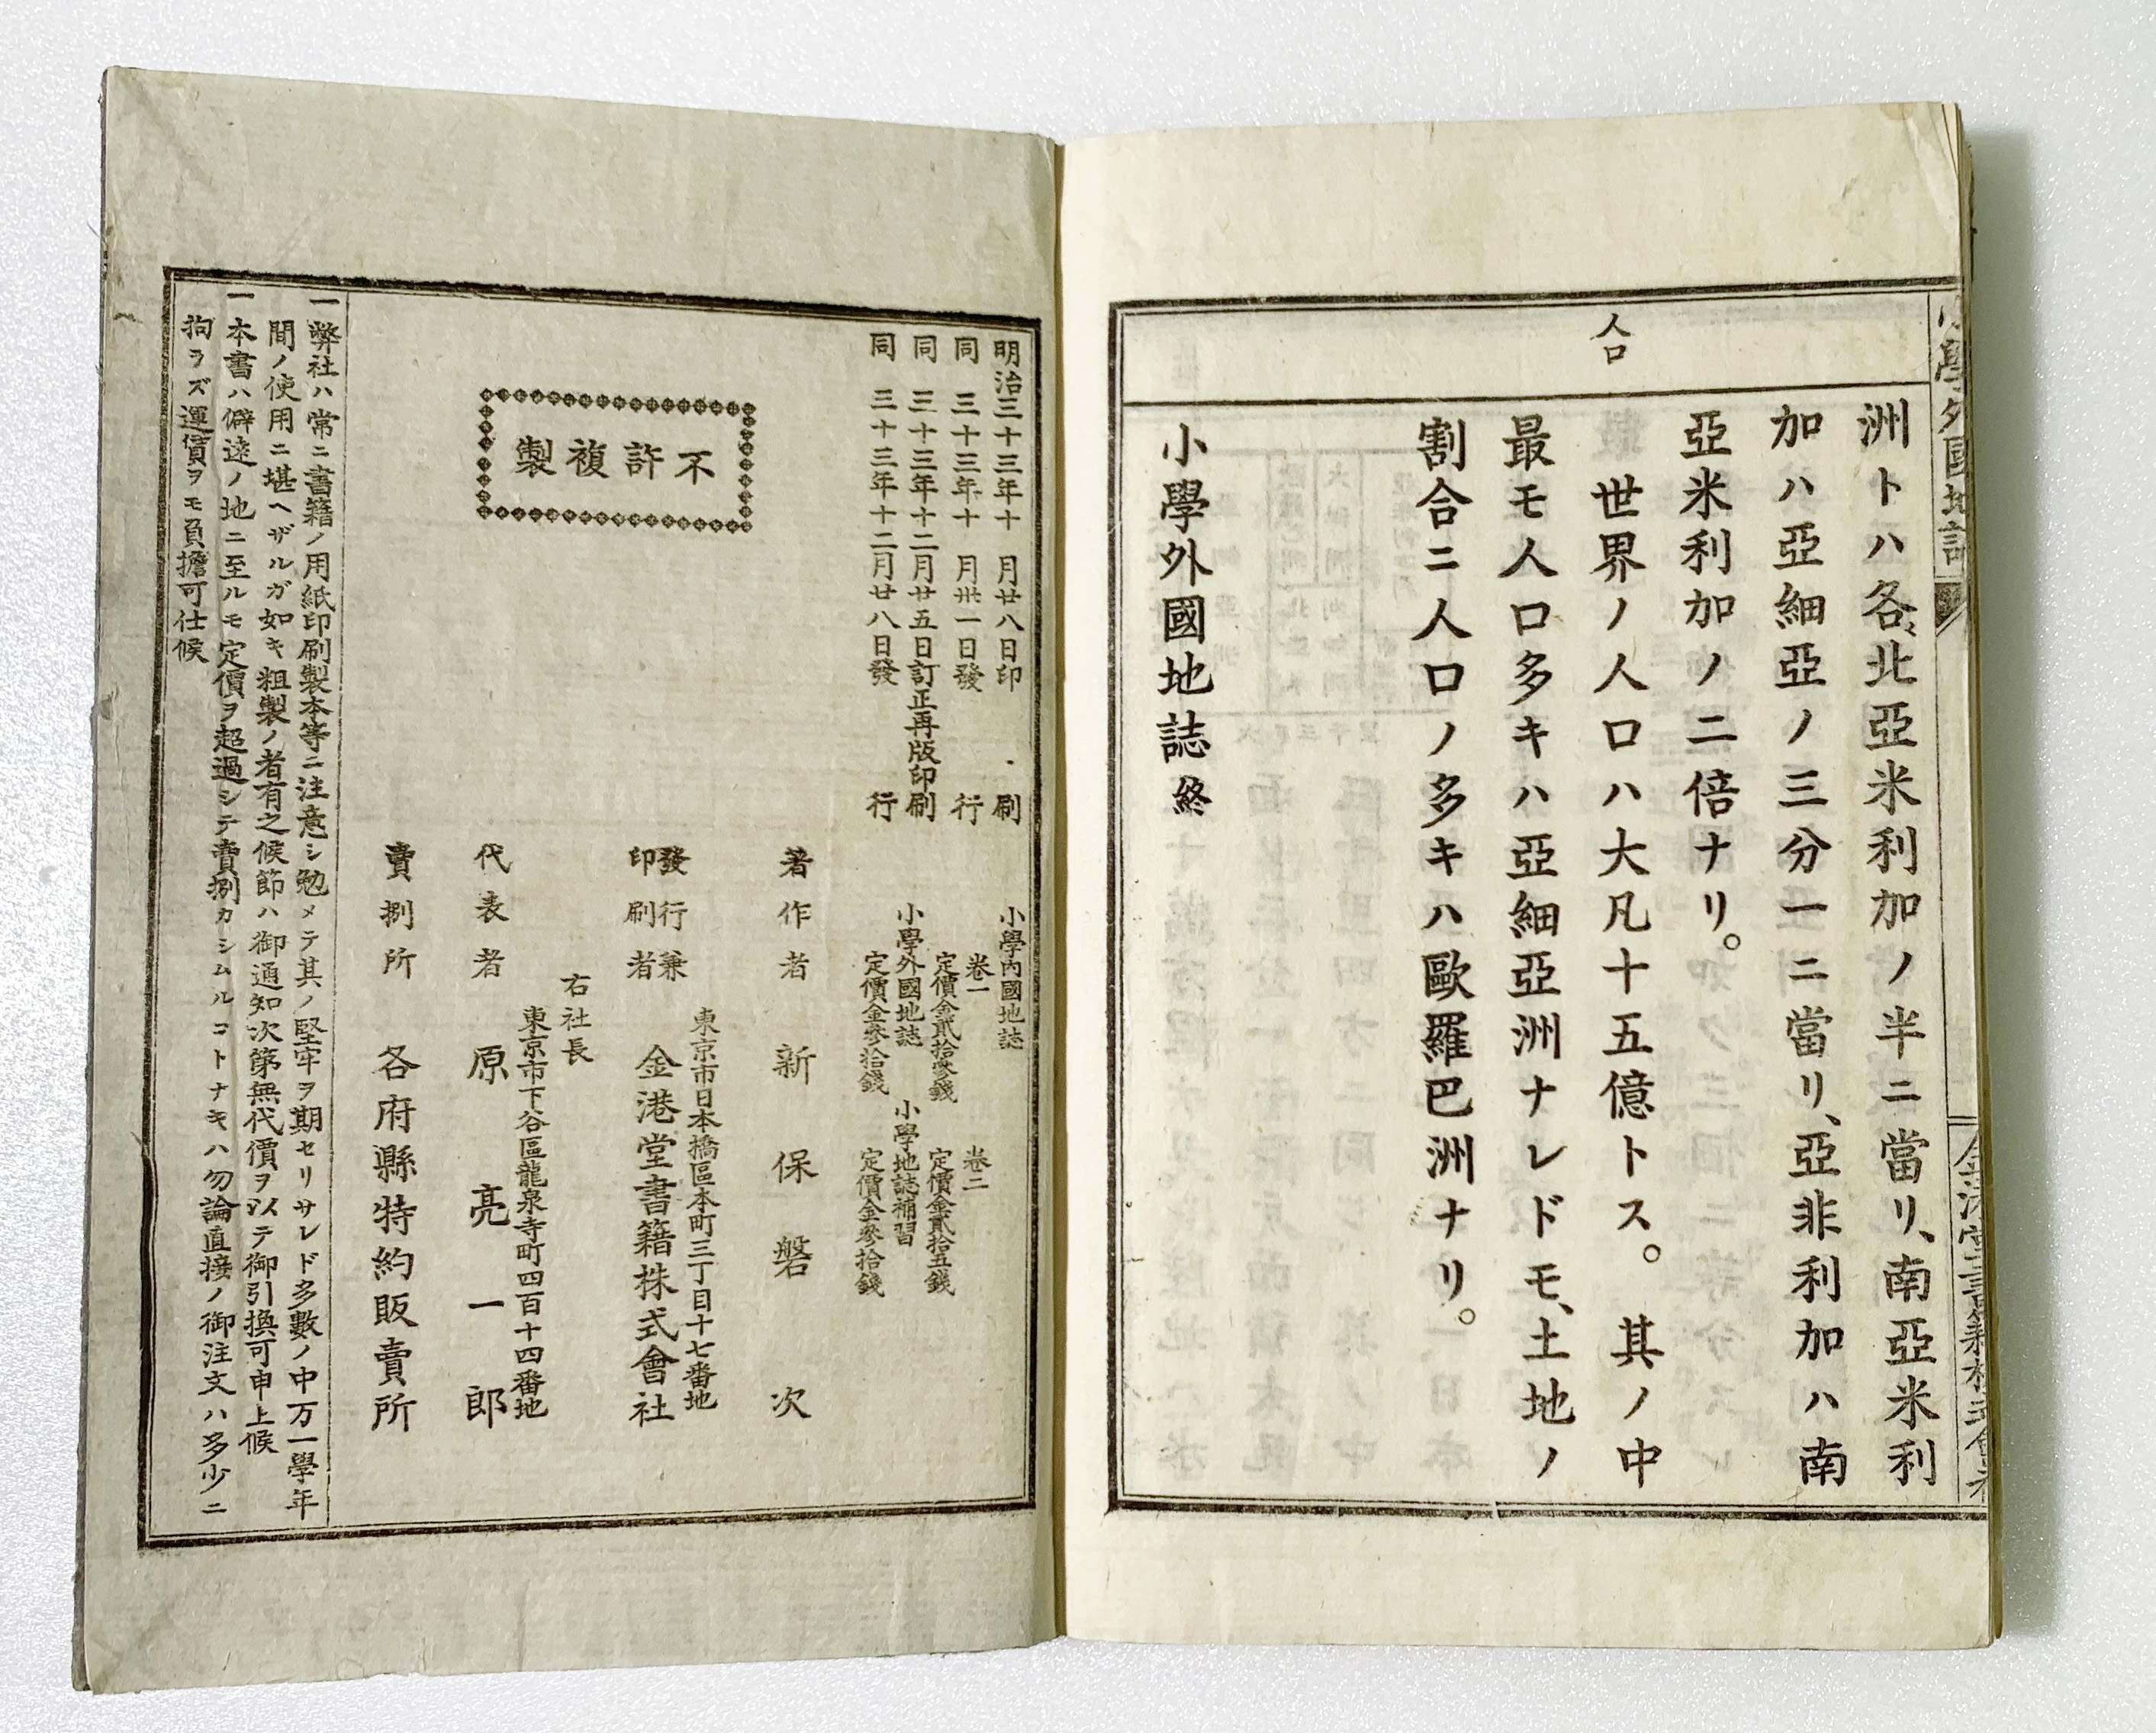 人口
洲トハ各〻北亞米利加ノ半ニ當リ、南亞米利
加ハ亞細亞ノ三分一ニ當リ、亞非利加ハ南
亞米利加ノ二倍ナリ。
世界ノ人口ハ大凡十五億トス。其ノ中
最モ人口多キハ亞細亞洲ナレドモ、土地ノ
割合ニ人口ノ多キハ歐羅巴洲ナリ。
小學外國地誌終
明治三十三年十月廿八日印刷
同三十三年十月卅一日發行
同三十三年十二月廿五日訂正再版印刷
同三十三年十二月廿八日發行
小學內國地誌
卷一
定價金貳拾參錢
卷二
定價金貳拾五錢
小學外國地誌
定價金參拾錢
小學地誌補習
定價金參拾錢
不許複製
著作者 新保磐次
東京市日本橋區本町三丁目十七番地
發行兼
印刷者 金港堂書籍株式會社
右社長
東京市下谷區龍泉寺町四百十四番地
代表者 原亮一郎
賣捌所 各府縣特約販賣所
一弊社ハ常ニ書籍ノ用紙印刷製本等ニ注意シ勉メテ其ノ堅牢ヲ期セリサレド多數ノ中万一學年
間ノ使用ニ堪ヘザルガ如キ粗製ノ者有之候節ハ御通知次第無代價ヲ以テ御引換可申上候
一本書ハ僻遠ノ地ニ至ルモ定價ヲ超過シテ賣捌カシムルコトナキハ勿論直接ノ御注文ハ多少ニ
拘ラズ運賃ヲモ負擔可仕候